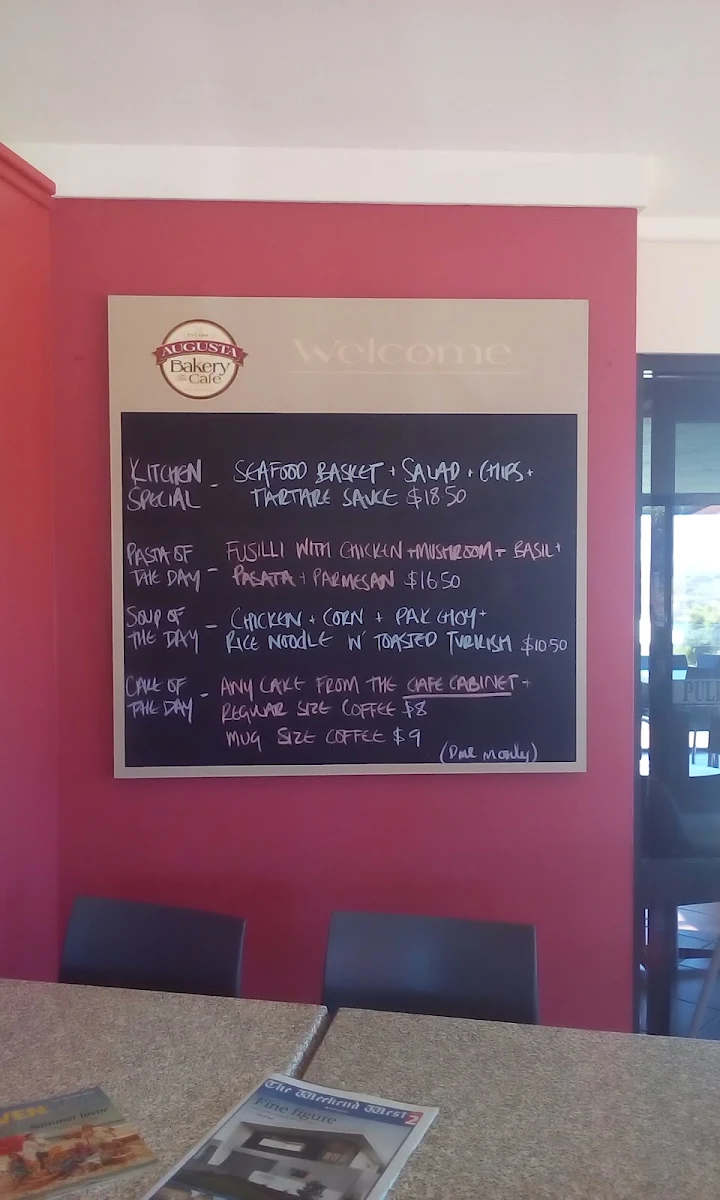 AUGUSTA
Bakery
Cafe
Welcome
KITCHEN SPECIAL - SEAFOOD BASKET + SALAD + CHIPS +
TARTARE SAUCE $18.50
PASTA OF THE DAY - FUSILLI WITH CHICKEN + MUSHROOM + BASIL +
PASATA + PARMESAN $16.50
SOUP OF THE DAY - CHICKEN + CORN + PAK CHOY +
RICE NOODLE W' TOASTED TURKISH $10.50
CAKE OF THE DAY - ANY CAKE FROM THE CAFE CABINET +
REGULAR SIZE COFFEE $8
MUG SIZE COFFEE $9
PULL
VEN
summer lovin'
The Weekend West 2
Fine figure